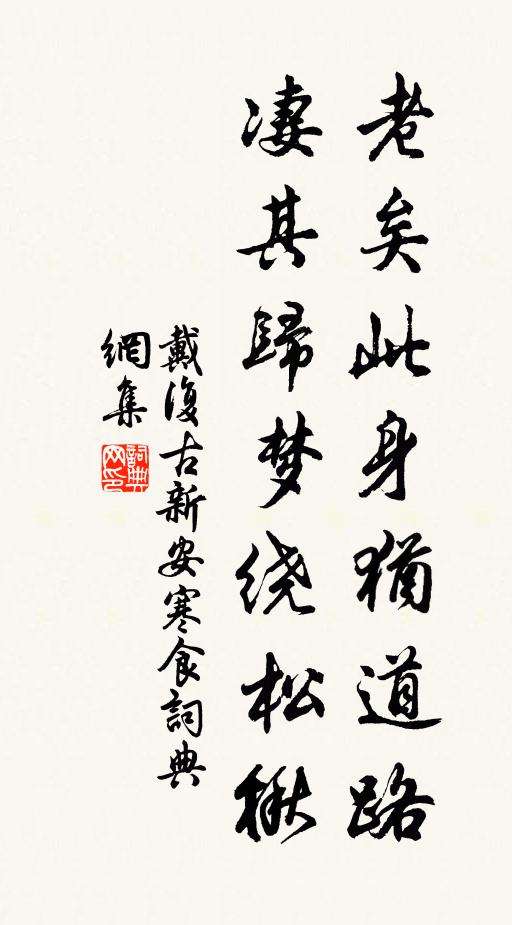 老矣此身猶道路
凄其歸梦绕松楸
戴復古新安寒食詞典
網集
詞典
网印